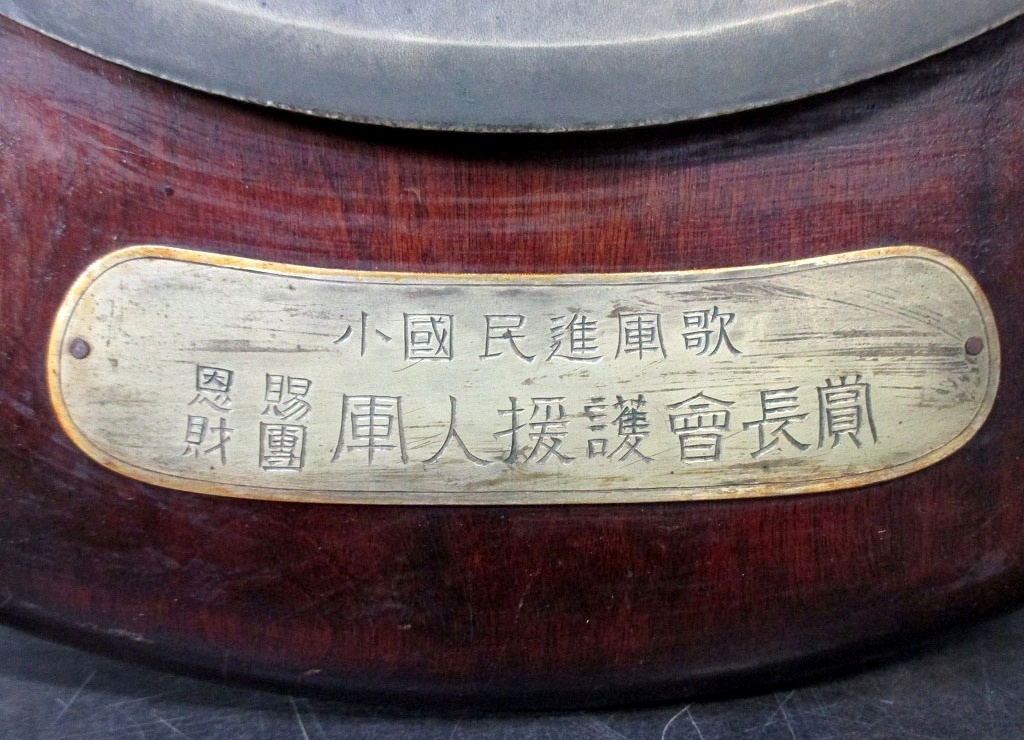 小國民進軍歌
恩賜
財團
軍人援護會長賞